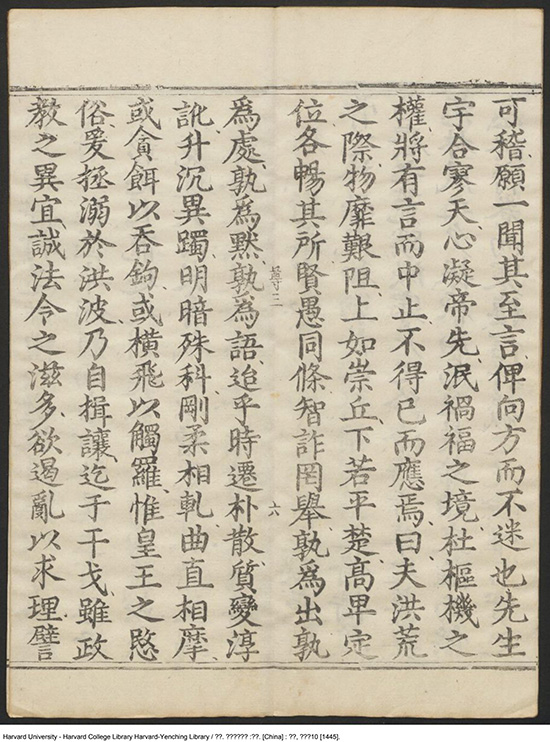 可稽願一聞其至言俾向方而不迷也先生
宇合寥天心凝帝先泯禍福之境杜樞機之
權將有言而中止不得已而應焉曰夫洪荒
之際物靡艱阻上如崇丘下若平楚高卑定
位各暢其所賢愚同條智詐罔舉孰為出孰
三 六
為處孰為默孰為語迨乎時遷朴散質變淳
訛升沉異躅明暗殊科剛柔相軋曲直相摩
或貪餌以吞鉤或橫飛以觸羅惟皇王之愍
俗爰拯溺於洪波乃自揖讓迄于干戈雖政
教之異宜誠法令之滋多欲遏亂以求理譬
Harvard University - Harvard College Library Harvard-Yenching Library / ??. ?????? :??. [China] : ??, ???10 [1445].